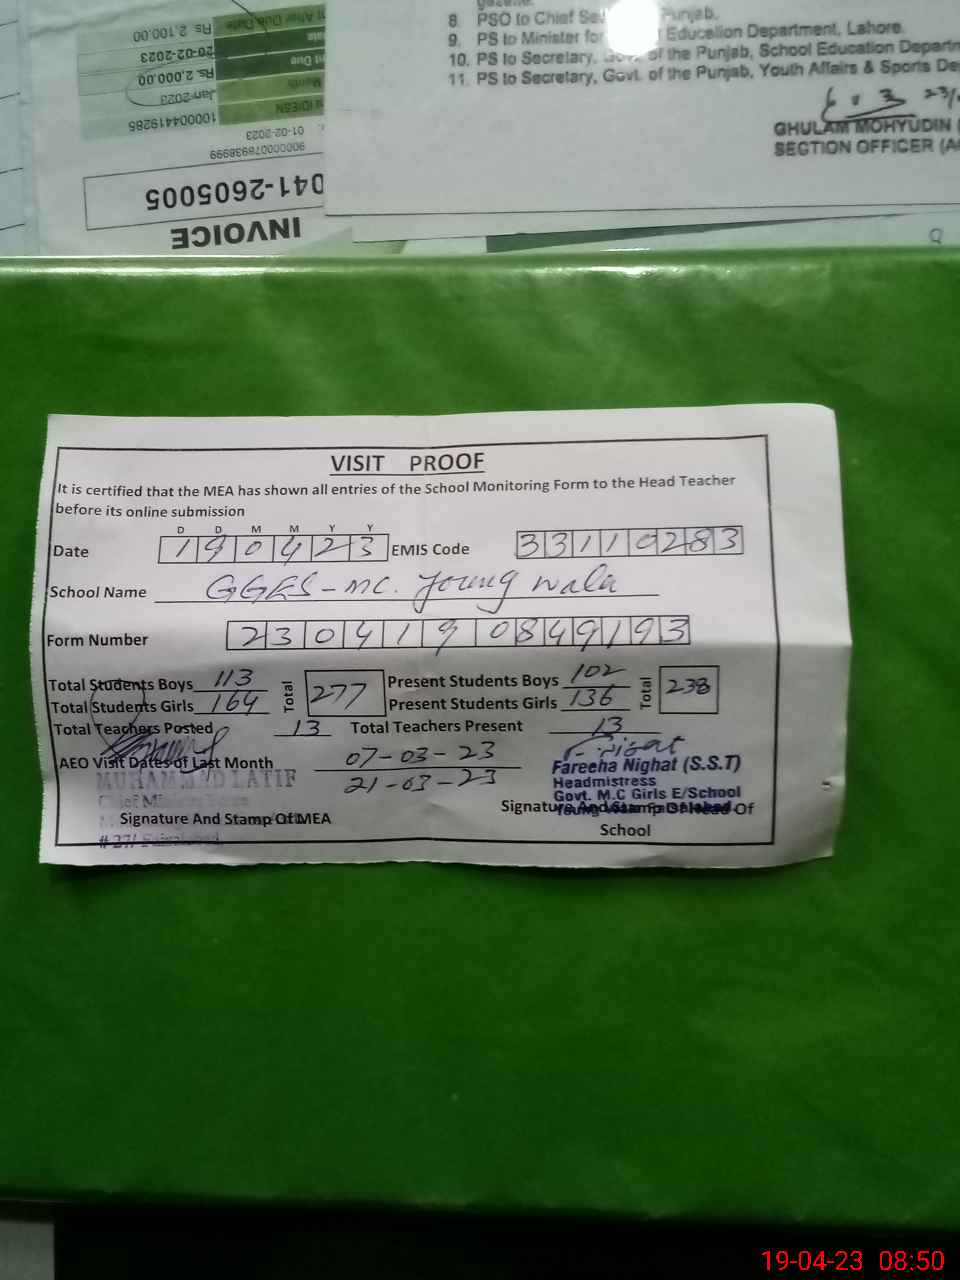 gazette.
8. PSO to Chief Punjab.
9. PS to Minister for Education Department, Lahore.
10. PS to Secretary, Govt. of the Punjab, School Education
11. PS to Secretary, Govt. of the Punjab, Youth Affairs & Sports
23/
GHULAM MOHYUDIN
SECTION OFFICER
INVOICE
041-2605005
9000000078938999
01-02-2023
100004419285
Jan-2023
Month
Rs. 2,000.00
20-02-2023
Rs. 2,100.00
After Due Date
VISIT PROOF
It is certified that the MEA has shown all entries of the School Monitoring Form to the Head Teacher
before its online submission
D D M M Y Y
Date 190423 EMIS Code 33110283
School Name GGES-MC. Young wala
Form Number 2304190849193
Total Students Boys 113 Total 277 Present Students Boys 102 Total 238
Total Students Girls 164 Present Students Girls 136
Total Teachers Posted 13 Total Teachers Present 13
AEO Visit Dates of Last Month 07-03-23
21-03-23
MUHAMMAD LATIF
Fareeha Nighat (S.S.T)
Headmistress
Govt. M.C Girls E/School
Signature And Stamp Of MEA
Signature And Stamp Of Head Of
School
19-04-23 08:50